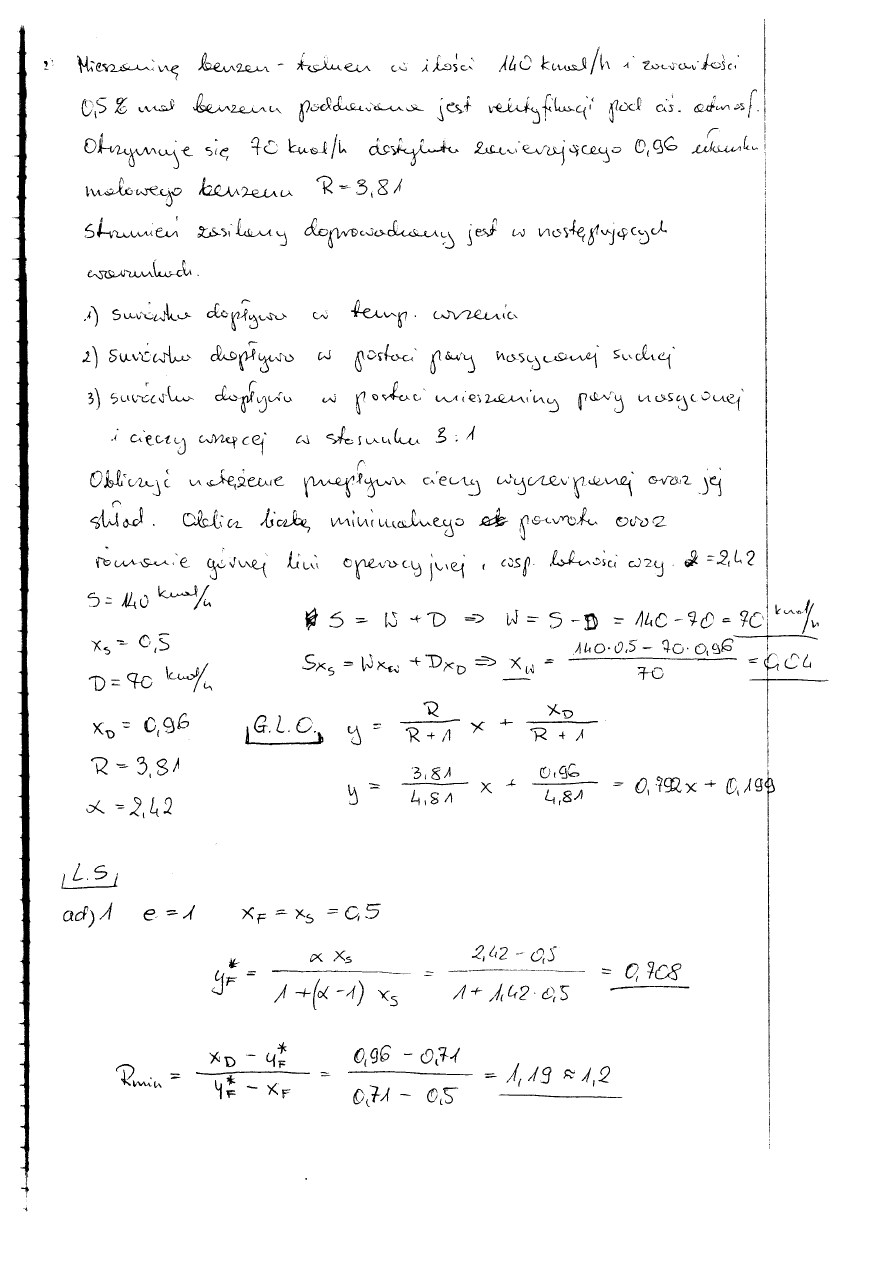 2. Mieszaninę benzen - toluen w ilości 140 kmol/h i zawartości
0,5 % mol benzenu poddawana jest rektyfikacji pod ciś. atmosf.
Otrzymuje się 70 kmol/h destylatu zawierającego 0,96 ułamka
molowego benzenu R = 3,81
Strumień zasilany doprowadzany jest w następujących
warunkach.
1) surówka dopływa w temp. wrzenia
2) surówka dopływa w postaci pary nasyconej suchej
3) surówka dopływa w postaci mieszaniny pary nasyconej
i cieczy wrzącej w stosunku 3 : 1
Obliczyć natężenie przepływu cieczy wyczerpanej oraz jej
skład. Oblicz liczbę minimalnego powrotu oraz
równanie górnej linii operacyjnej, wsp. lotności wzg. α = 2,42
S = 140 kmol/h
S = W + D ⇒ W = S - D = 140 - 70 = 70 kmol/h
x_S = 0,5
Sx_S = Wx_W + Dx_D ⇒ x_W = (140·0,5 - 70·0,96)/70 = 0,04
D = 70 kmol/h
x_D = 0,96
G.L.O. y = R/(R + 1) x + x_D/(R + 1)
R = 3,81
y = 3,81/4,81 x + 0,96/4,81 = 0,792x + 0,199
α = 2,42
L.S
ad) 1 e = 1 x_F = x_S = 0,5
y_F^* = α x_S / (1 + (α - 1) x_S) = (2,42 - 0,5)/(1 + 1,42·0,5) = 0,708
Rmin = (x_D - y_F^*)/(y_F^* - x_F) = (0,96 - 0,71)/(0,71 - 0,5) = 1,19 ≈ 1,2